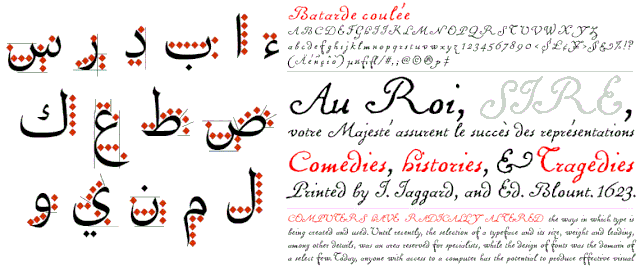 ء ا ب د ر س
ص ط ع ك
ل م ن ي و
Batarde coulée
ABCDEFGHIJKLMNOPQRSTUVWXYZ
abcdefghijklmnopqrstuvwxyz 1234567890
Au Roi, SIRE,
votre Majesté assurent le succès des représentations
Comedies, histories, & Tragedies
Printed by I. Iaggard, and Ed. Blount. 1623.
COMPUTERS HAVE RADICALLY ALTERED the ways in which type is
being created and used. Until recently, the selection of a typeface and its size, weight and leading,
among other details, was an area reserved for specialists, while the design of fonts was the domain of
a select few. Today, anyone with access to a computer has the potential to produce effective visual